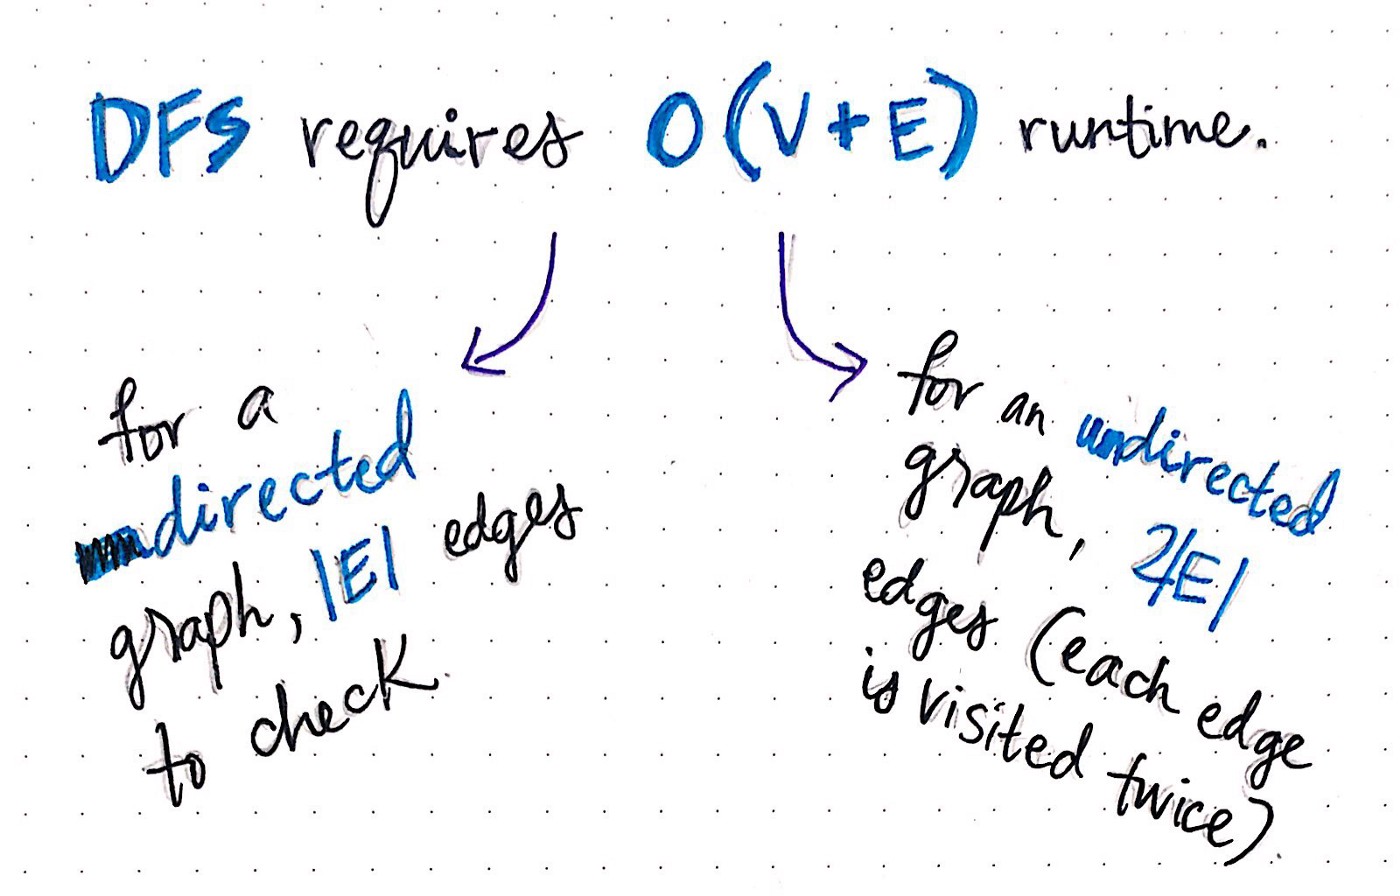 DFS requires O(V+E) runtime.
for a
directed
graph, |E| edges
to check.
for an undirected
graph, 2|E|
edges (each edge
is visited twice)